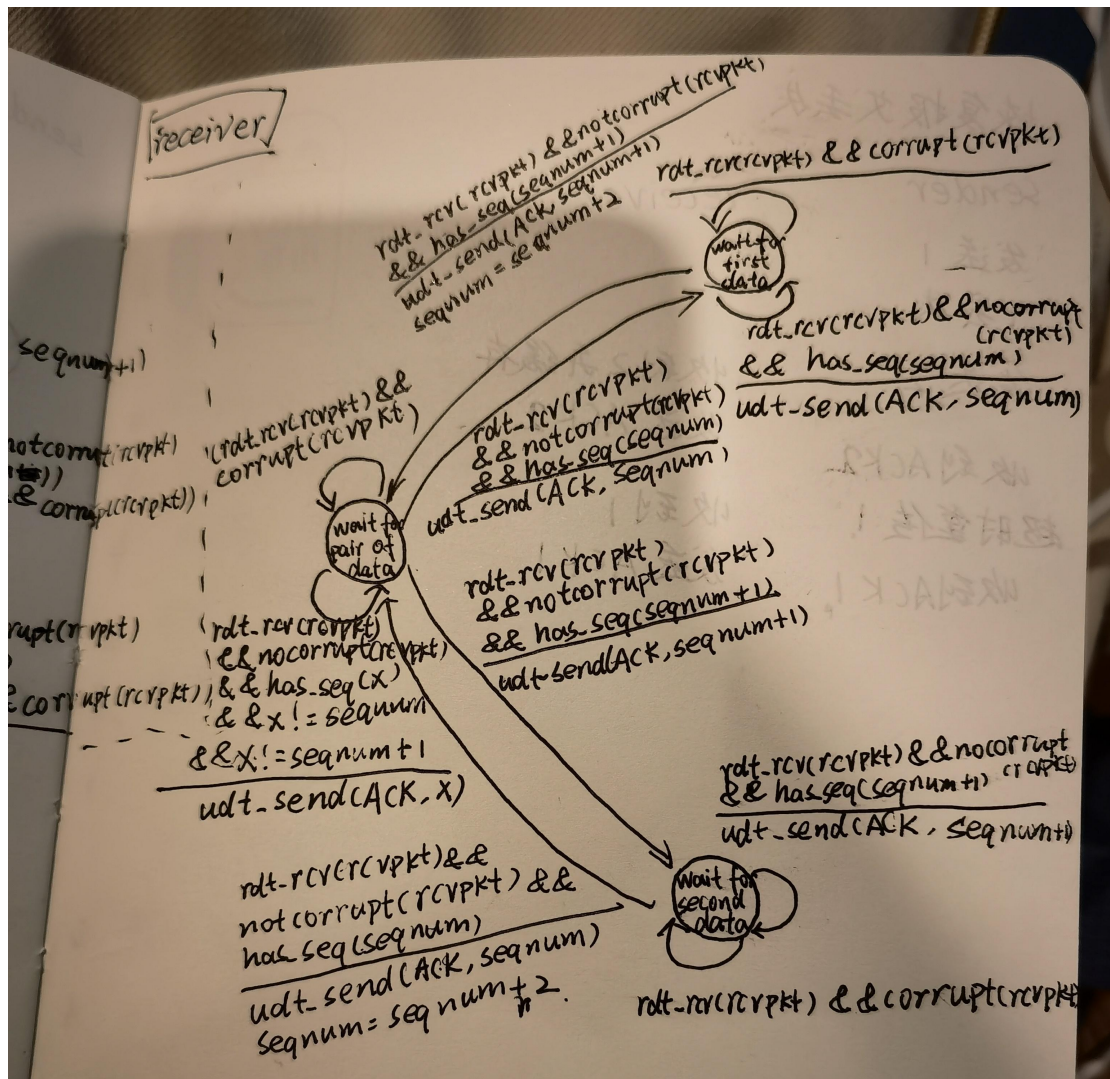 receiver
rdt_rcv(rcvpkt) && notcorrupt(rcvpkt)
&& has_seq(seqnum+1)
udt_send(ACK, seqnum+1)
seqnum = seqnum+2
rdt_rcv(rcvpkt) && corrupt(rcvpkt)
wait for
first
data
rdt_rcv(rcvpkt) && nocorrupt
(rcvpkt)
&& has_seq(seqnum)
udt_send(ACK, seqnum)
seqnum+1)
notcorrupt(rcvpkt)
& corrupt(rcvpkt))
rupt(rcvpkt)
& corrupt(rcvpkt))
(rdt_rcv(rcvpkt) &&
corrupt(rcvpkt)
rdt_rcv(rcvpkt)
&& notcorrupt(rcvpkt)
&& has_seq(seqnum)
udt_send(ACK, seqnum)
wait for
pair of
data
rdt_rcv(rcvpkt)
&& notcorrupt(rcvpkt)
&& has_seq(seqnum+1)
udt_send(ACK, seqnum+1)
rdt_rcv(rcvpkt)
&& nocorrupt(rcvpkt)
&& has_seq(x)
&& x != seqnum
&& x != seqnum+1
udt_send(ACK, x)
rdt_rcv(rcvpkt) && nocorrupt
(rcvpkt)
&& has_seq(seqnum+1)
udt_send(ACK, seqnum+1)
wait for
second
data
rdt_rcv(rcvpkt) &&
notcorrupt(rcvpkt) &&
has_seq(seqnum)
udt_send(ACK, seqnum)
seqnum = seqnum+2
rdt_rcv(rcvpkt) && corrupt(rcvpkt